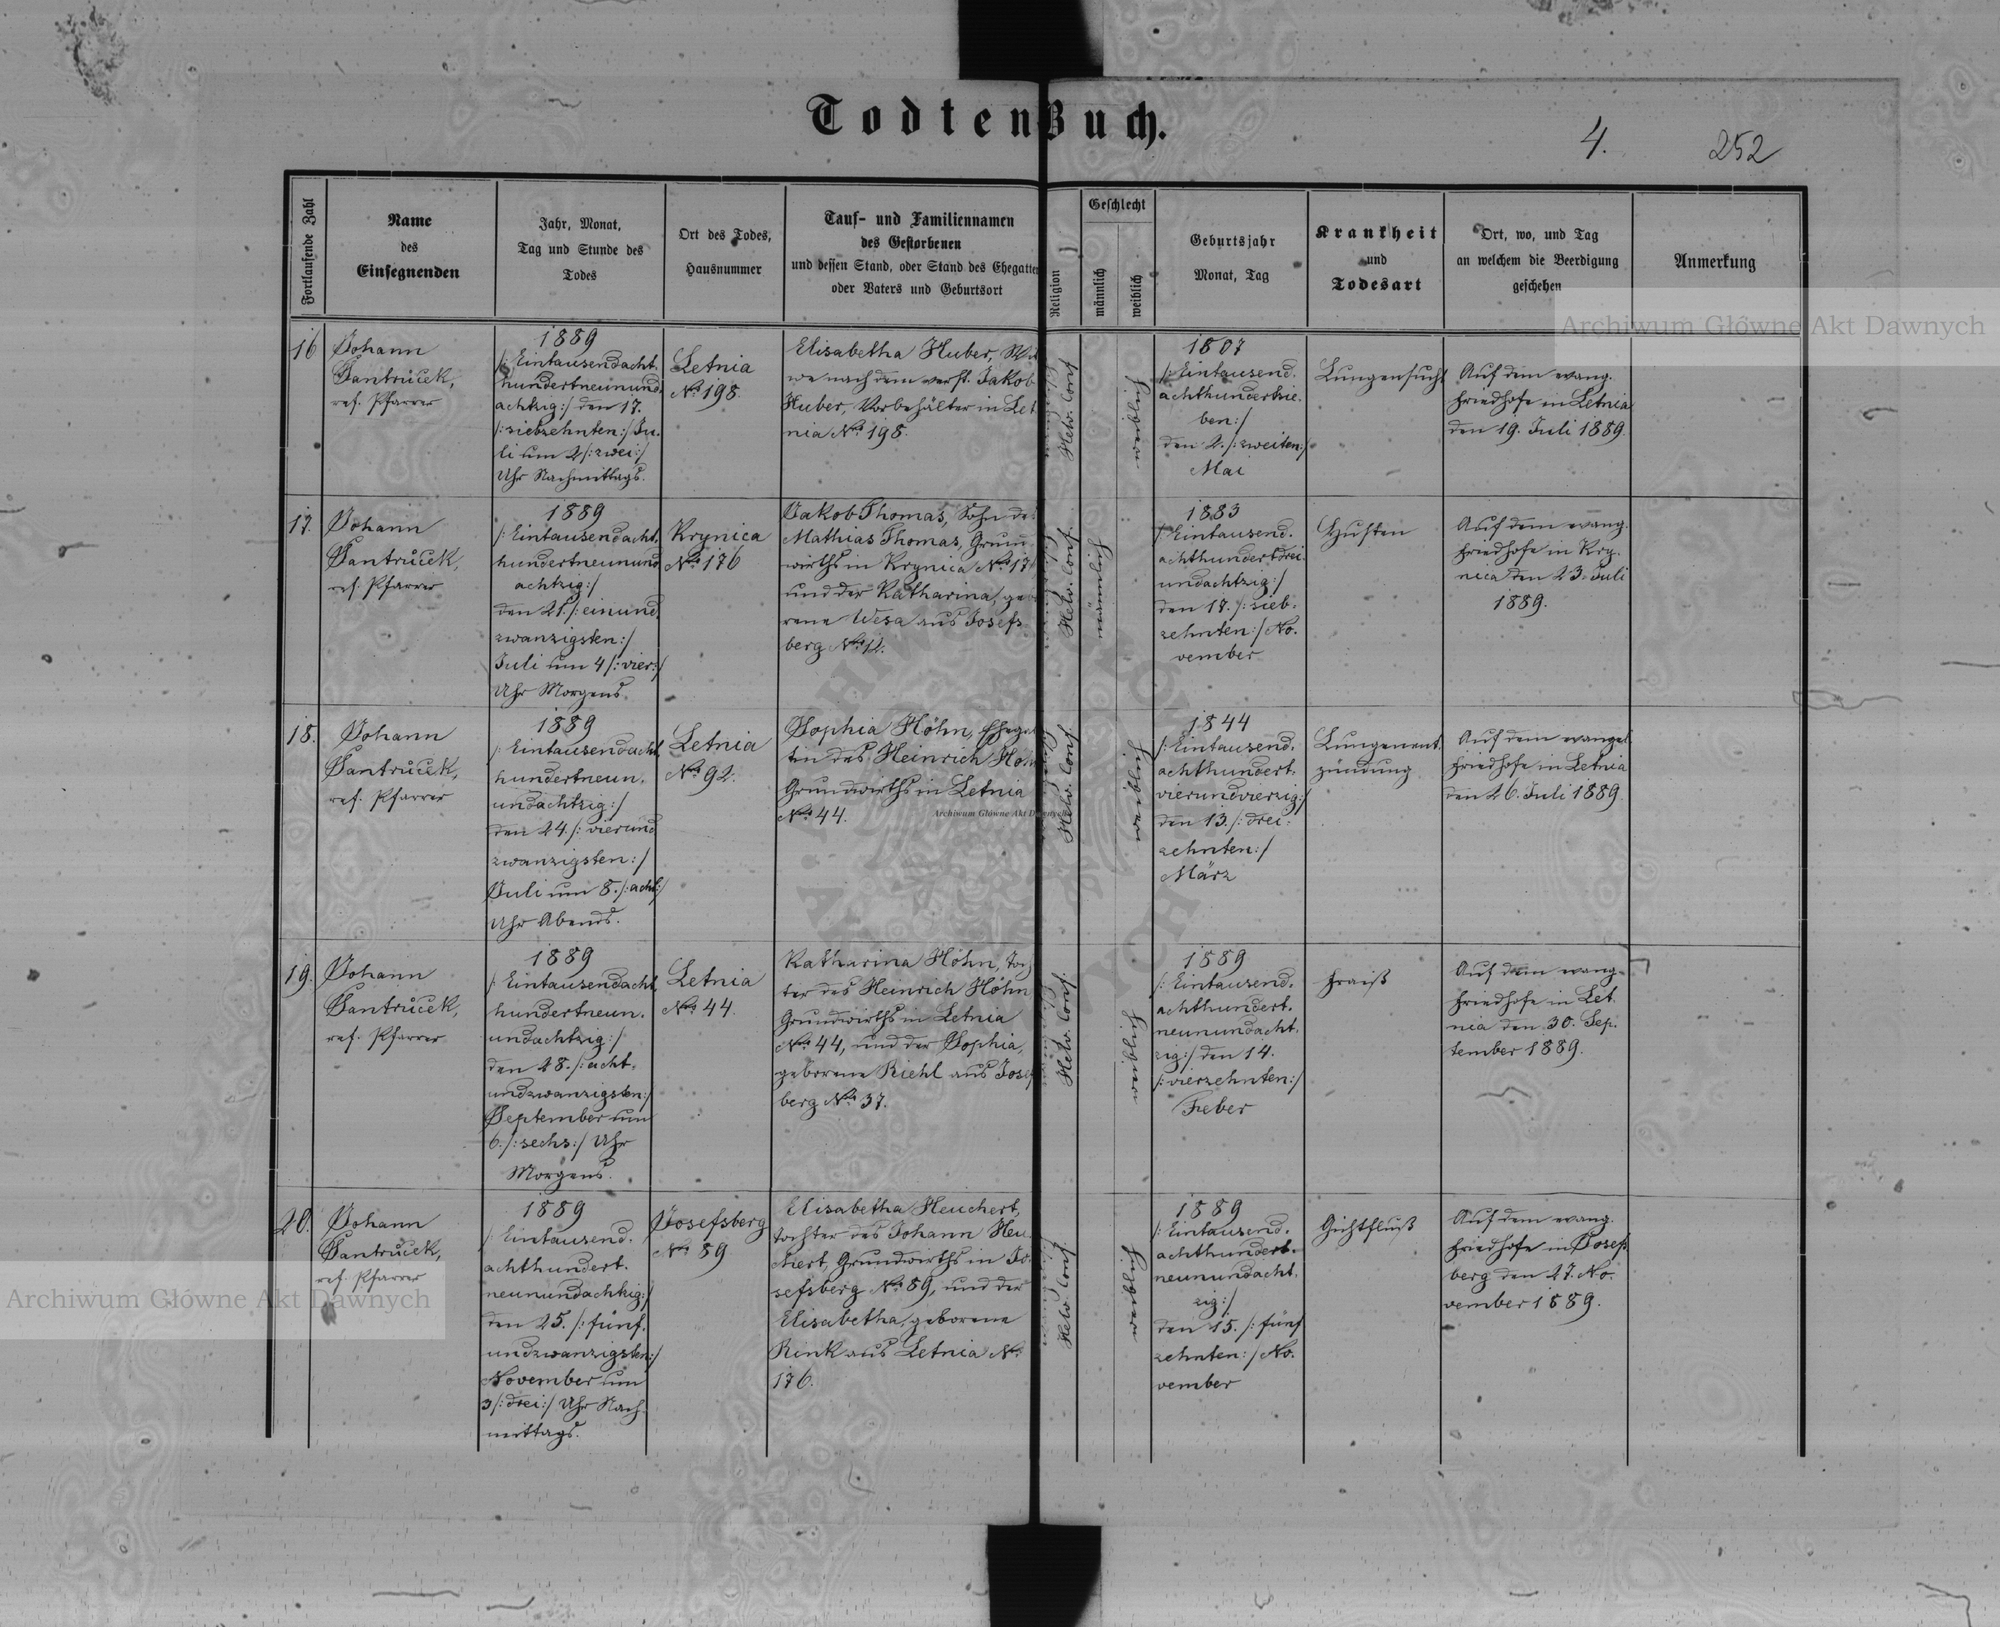 TodtenBuch.
4.
252
Fortlaufende Zahl
Name
des
Einsegnenden
Jahr, Monat,
Tag und Stunde des
Todes
Ort des Todes,
Hausnummer
Tauf- und Familiennamen
des Gestorbenen
und dessen Stand, oder Stand des Ehegatten
oder Vaters und Geburtsort
Religion
Geschlecht
männlich
weiblich
Geburtsjahr
Monat, Tag
Krankheit
und
Todesart
Ort, wo, und Tag
an welchem die Beerdigung
geschehen
Anmerkung
16
Johann
Jantrůcek,
ref. Pfarrer
1889
/: Eintausendacht-
hundertneunund-
achtzig :/ den 17.
/: siebzehnten :/ Ju-
li um 2 /: zwei :/
Uhr Nachmittags.
Letnia
No. 198.
Elisabetha Huber, Wit
we nach dem verst. Jakob
Huber, Vorbehälter in Let
nia No. 198.
Helv. Conf.
weiblich
1807
/: Eintausend-
achthundertsie-
ben :/
den 2. /: zweiten :/
Mai
Lungensucht
Auf dem evang.
Friedhofe in Letnia
den 19. Juli 1889.
17.
Johann
Jantrůcek,
ref. Pfarrer
1889
/: Eintausendacht-
hundertneunund
achtzig :/
den 21. /: einund-
zwanzigsten :/
Juli um 4 /: vier :/
Uhr Morgens.
Krynica
No. 176
Jakob Thomas, Sohn des
Mathias Thomas, Grund
wirths in Krynica No. 176
und der Katharina, gebo
rene Wesa aus Josefs
berg No. 12.
Helv. Conf.
männlich
1883
/: Eintausend-
achthundertdrei-
undachtzig :/
den 17. /: sieb-
zehnten :/ No-
vember
Husten
Auf dem evang.
Friedhofe in Kry-
nica den 23. Juli
1889.
18.
Johann
Jantrůcek,
ref. Pfarrer
1889
/: Eintausendacht
hundertneun-
undachtzig :/
den 24. /: vierund
zwanzigsten :/
Juli um 8. /: acht :/
Uhr Abends.
Letnia
No. 92.
Sophia Höhn, Ehegat
tin des Heinrich Höhn
Grundwirths in Letnia
No. 44.
Helv. Conf.
weiblich
1844
/: Eintausend-
achthundert-
vierundvierzig :/
den 13. /: drei-
zehnten :/
März
Lungenent-
zündung
Auf dem evangel.
Friedhofe in Letnia
den 26. Juli 1889.
19.
Johann
Jantrůcek,
ref. Pfarrer
1889
/: Eintausendacht-
hundertneun-
undachtzig :/
den 28. /: acht-
undzwanzigsten :/
September um
6. /: sechs :/ Uhr
Morgens.
Letnia
No. 44.
Katharina Höhn, Toch
ter des Heinrich Höhn
Grundwirths in Letnia
No. 44, und der Sophia,
geborene Riehl aus Josef
berg No. 37.
Helv. Conf.
weiblich
1889
/: Eintausend-
achthundert-
neunundacht-
zig :/ den 14.
/: vierzehnten :/
Feber
Fraiß
Auf dem evang.
Friedhofe in Let-
nia den 30. Sep-
tember 1889.
20.
Johann
Jantrůcek,
ref. Pfarrer
1889
/: Eintausend-
achthundert-
neunundachtzig :/
den 25. /: fünf-
undzwanzigsten :/
November um
3 /: drei :/ Uhr Nach-
mittags.
Josefsberg
No. 89
Elisabetha Heuchert,
Tochter des Johann Heu-
chert, Grundwirths in Jo-
sefsberg No. 89, und der
Elisabetha, geborene
Rink aus Letnia No.
176.
Helv. Conf.
weiblich
1889
/: Eintausend-
achthundert-
neunundacht-
zig :/
den 15. /: fünf
zehnten :/ No-
vember
Gichtfluß
Auf dem evang.
Friedhofe in Josefs
berg den 27. No-
vember 1889.
Archiwum Główne Akt Dawnych
Archiwum Główne Akt Dawnych
Archiwum Główne Akt Dawnych